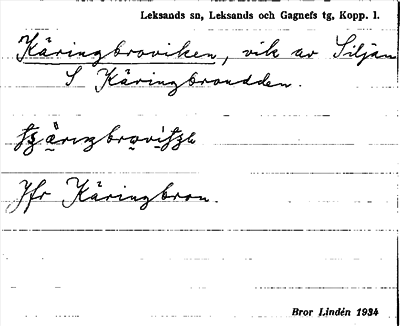 Leksands sn, Leksands och Gagnefs tg, Kopp. l.
Käringbroviken, vik av Siljan
S Käringbroudden.
Jfr Käringbron.
Bror Lindén 1934